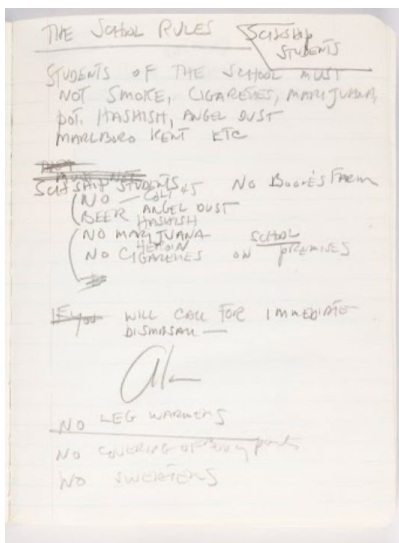 THE SCHOOL RULES
SCHLSHIP
STUDENTS
STUDENTS OF THE SCHOOL MUST
NOT SMOKE, CIGARETTES, MARIJUANA,
POT, HASHISH, ANGEL DUST
MARLBORO KENT ETC
SCHLSHIP STUDENTS NO BOONE'S FARM
NO COLT 45
BEER ANGEL DUST
HASHISH
NO MARIJUANA SCHOOL
HEROIN
NO CIGARETTES ON PREMISES
IF YOU WILL CALL FOR IMMEDIATE
DISMASAL —
NO LEG WARMERS
NO COVERING OF BODY PARTS
NO SWEATERS